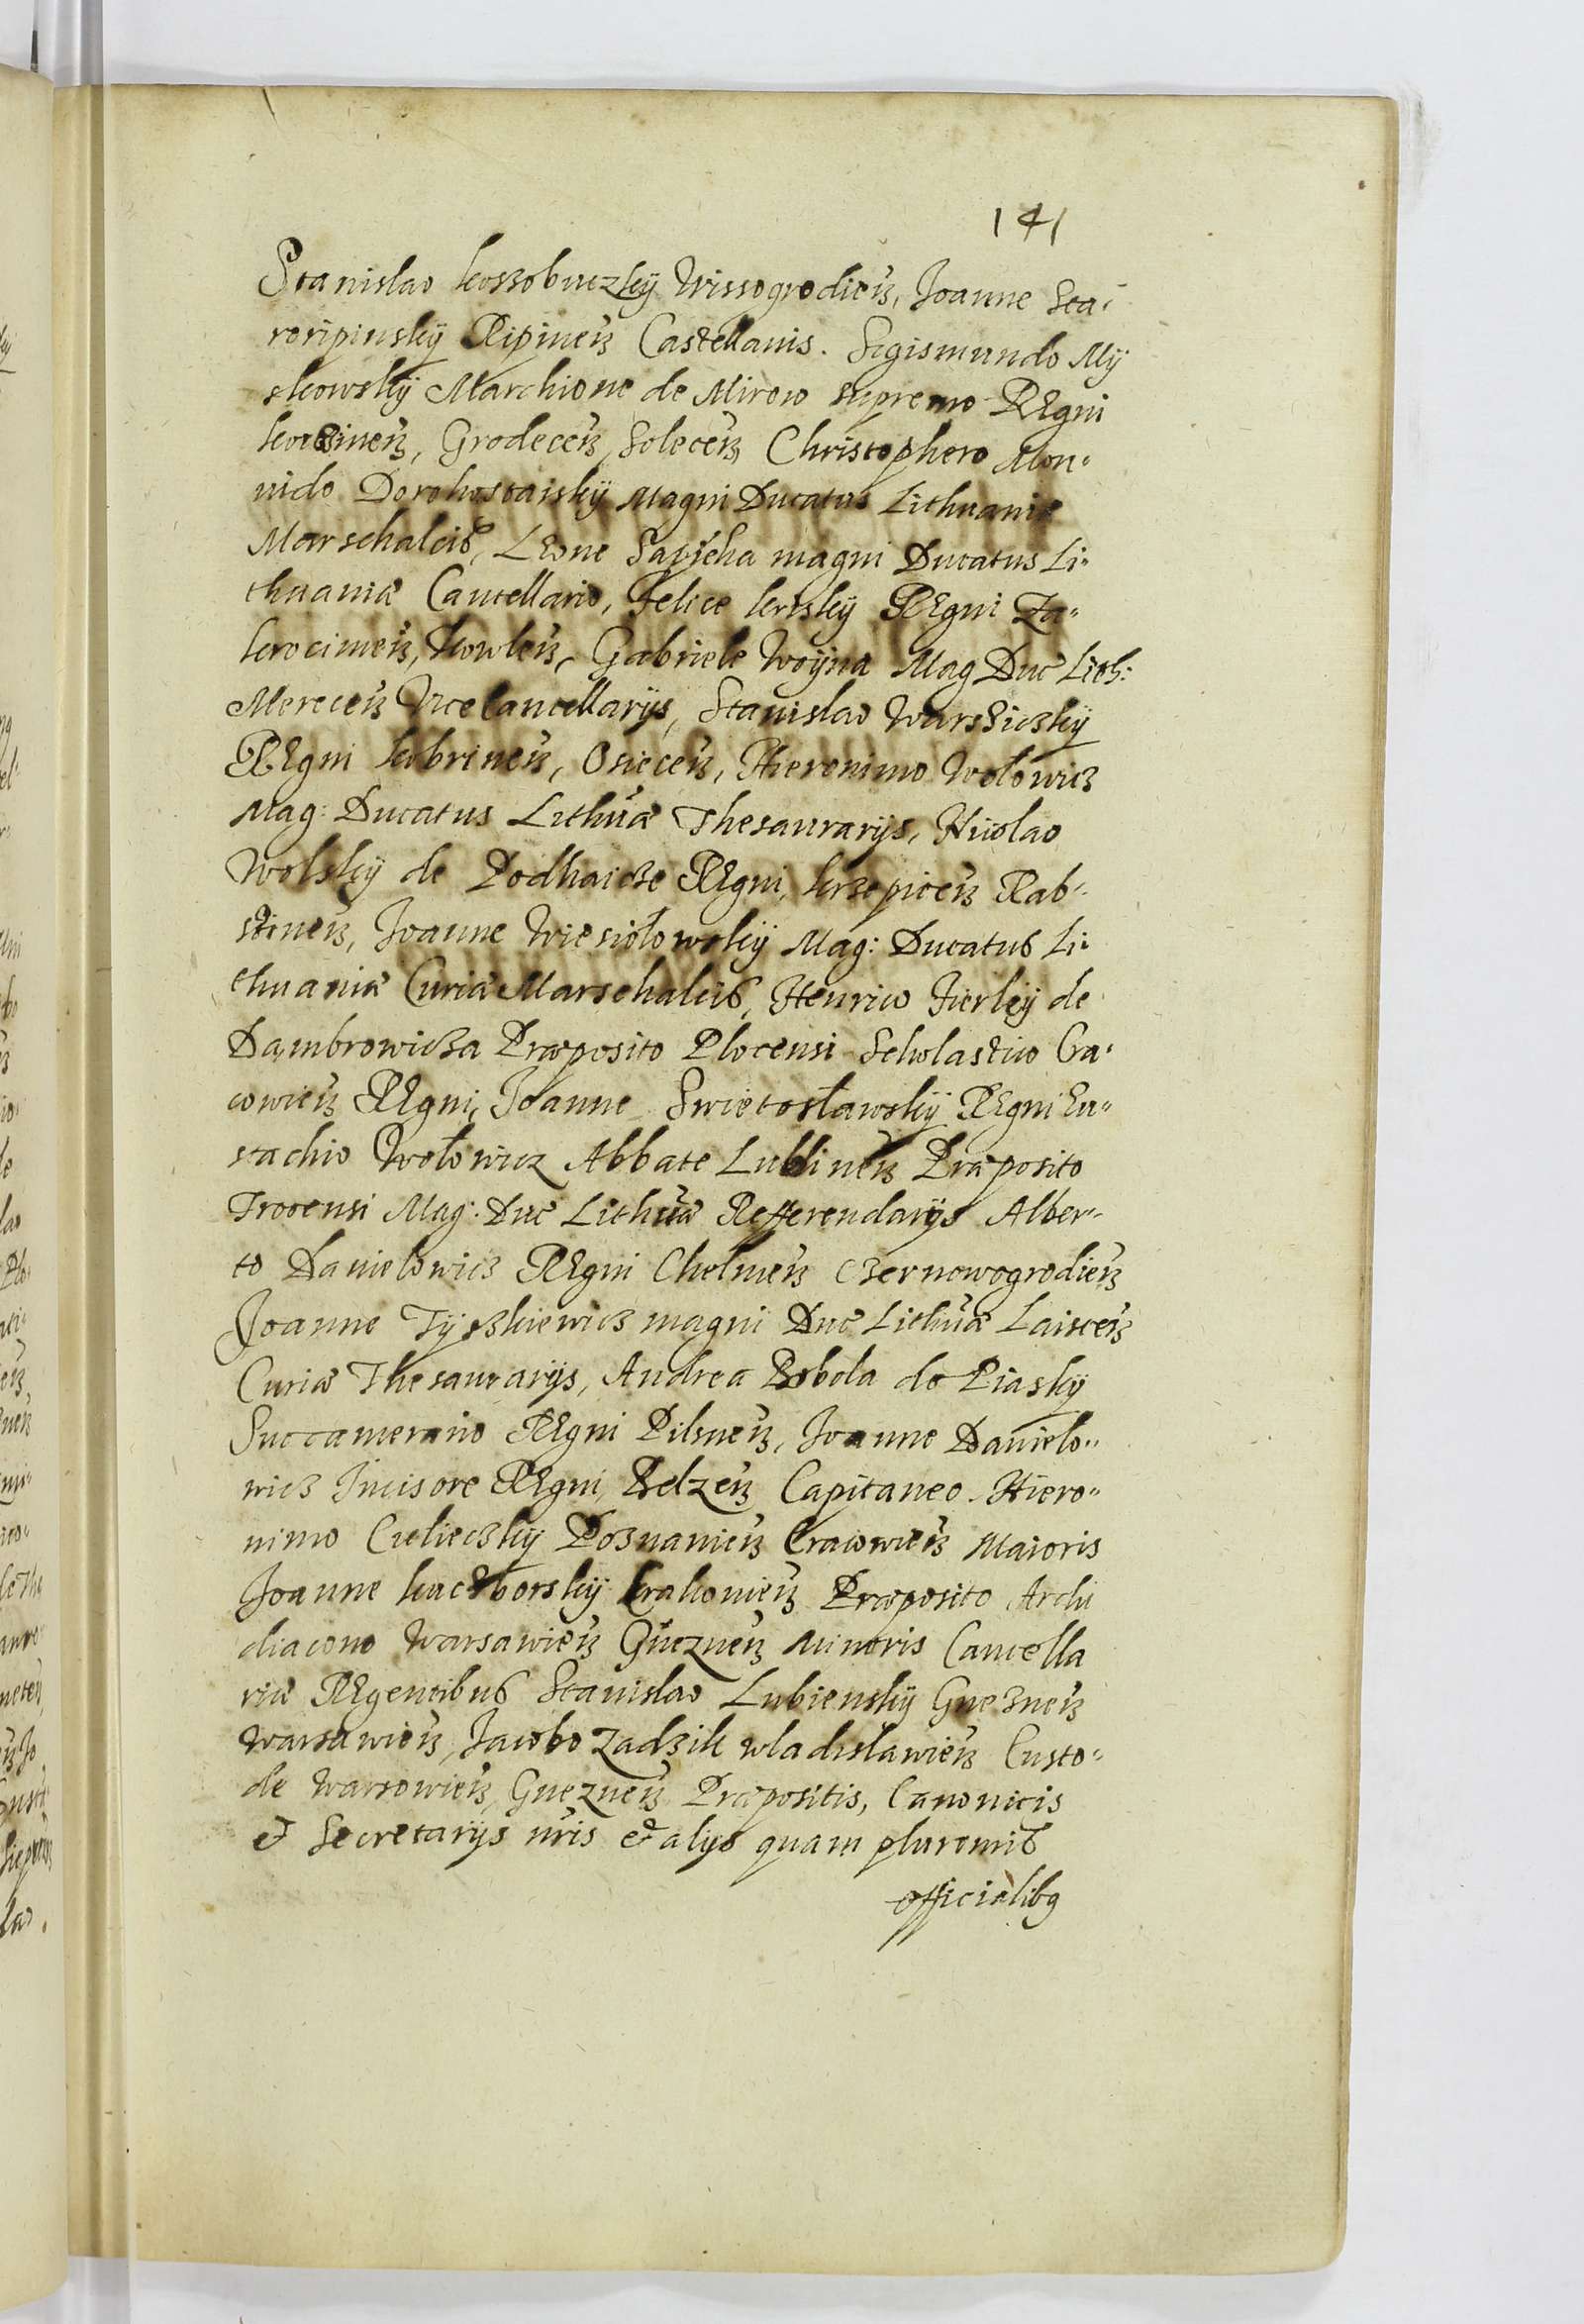 141
Stanislao Kossobuczkÿ Wissogrodień, Joanne Sta-
roripinskÿ Ripineñ Castellanis. Sigismundo Mÿ
skowskÿ Marchione de Mirow supremo REgni
Korcineñ, Grodeceñ, Soleceñ Christophero Mon-
nido Dorohostaiskÿ Magni Ducatus Lithuaniæ
Marschalcis, LEone Sapieha magni Ducatus Li-
thuaniæ Cancellario, Felice Kriskÿ REgni Za-
krocimeñ, Kowleñ, Gabriele Woÿna Mag Duc Lith:
Mereceñ Vicecancellarÿs, Stanislao Warssiczkÿ
REgni Kobrineñ, Osieceñ, Hieronimo Wołowicz
Mag: Ducatus Lithuæ Thesaurarÿs, Nicolao
Wolskÿ de Podhaicze REgni, Krzepiceñ Rab-
stineñ, Joanne Wiesiołowskÿ Mag: Ducatus Li-
thuaniæ Curiæ Marschalcis, Henrico Firleÿ de
Dambrowicza Præposito Plocensi Scholastico Cra-
cowieñ REgni, Joanne Swietosławskÿ REgni Eu-
stachio Wołowicz Abbate Lublineñ Præposito
Trocensi Mag: Duc Lithuæ Refferendarÿs Alber-
to Daniełowicz REgni Chelmeñ Czernowogrodieñ
Joanne Tÿszkiewicz magni Duc Lithuæ Laisceñ
Curiæ Thesaurarÿs, Andrea Bobola de Piaskÿ
Succamerario REgni Pilsneñ, Joanne Danielo-
wicz Incisore REgni, Belzeñ Capitaneo. Hiero-
nimo Cielieczkÿ Poznanieñ Cracowieñ Maioris
Joanne Kucborskÿ Krakouieñ Præposito Archi
diacono Warsawieñ Gnezneñ Minoris Cancella
riæ REgentibus Stanislao Lubienskÿ Gnezneñ
Warsawieñ, Jacobo Zadzik Wladislawieñ Custo-
de Warsowieñ, Gnezneñ Præpositis, Canonicis
et Secretarÿs nris et alÿs quam pluremis
officialibq